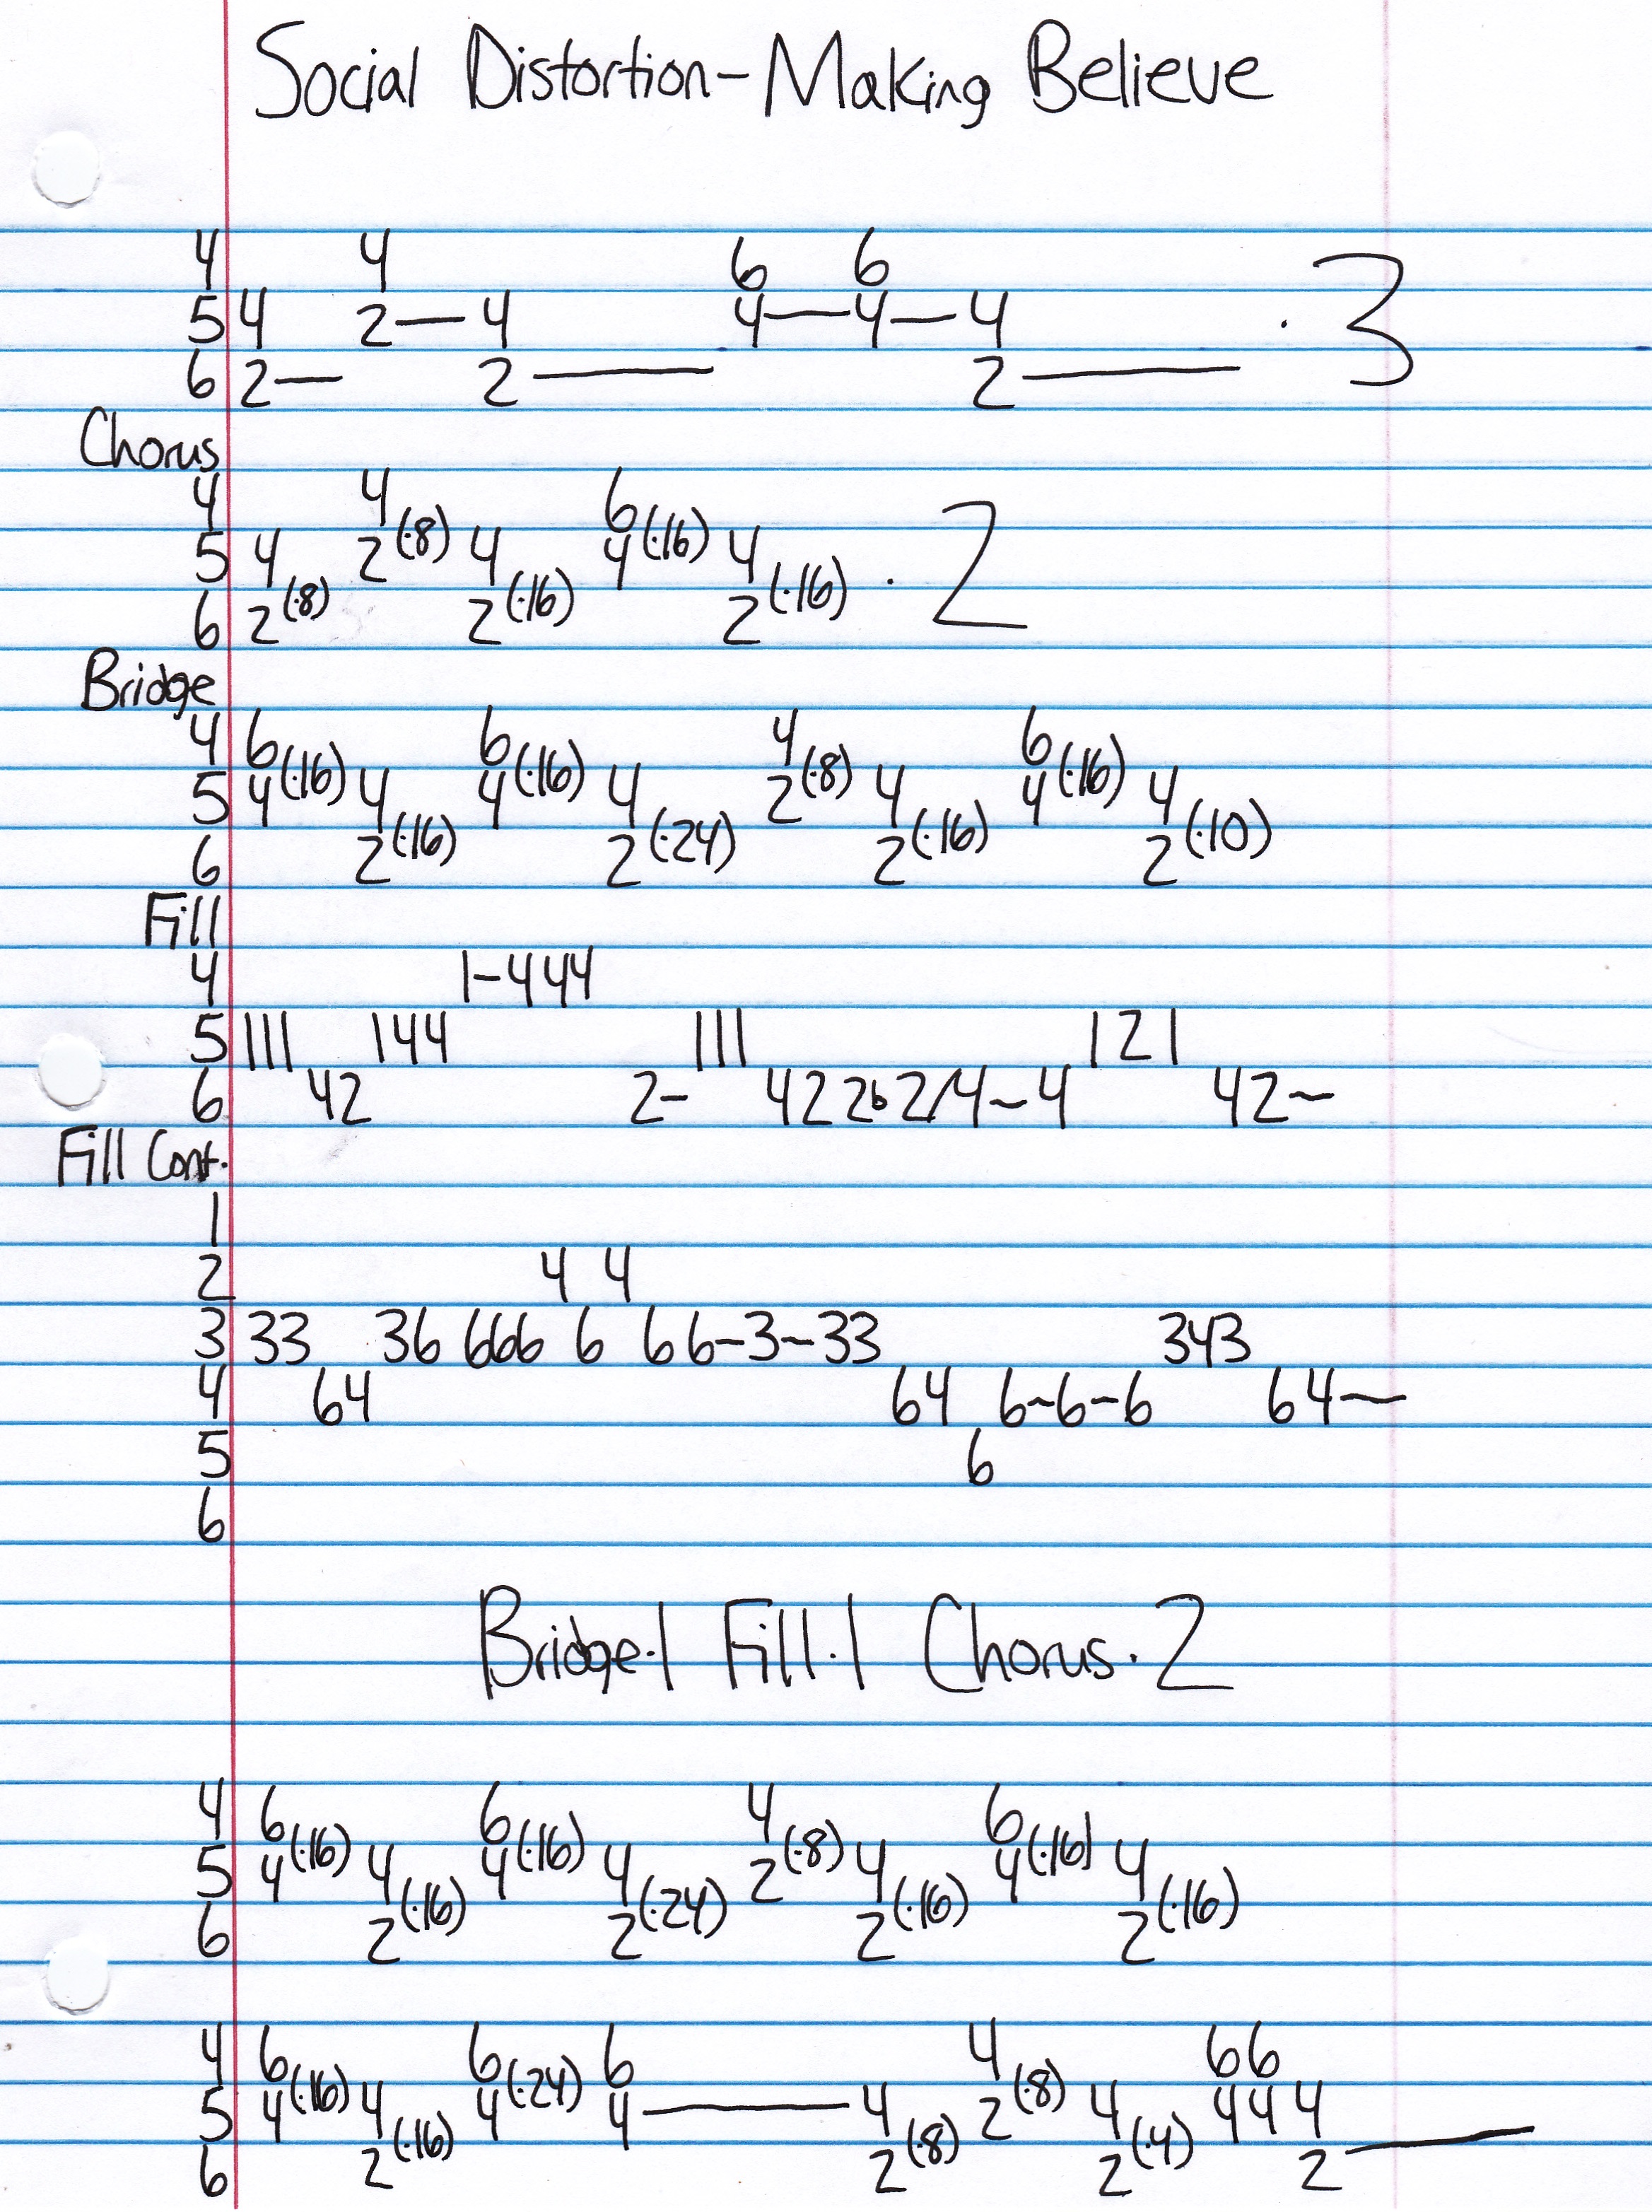 Social Distortion-Making Believe
4 4 6 6
5 4 2—4 4—4—4 ·3
6 2— 2—— 2——
Chorus
4 4 6
5 4 2(·8) 4 4(·16) 4
6 2(·8) 2(·16) 2(·16) ·2
Bridge
4 6 6 4 6
5 4(·16) 4 4(·16) 4 2(·8) 4 4(·16) 4
6 2(·16) 2(·24) 2(·16) 2(·10)
Fill
4 1-444
5 111 144 111 121
6 42 2- 42 2b2/4~4 42~
Fill Cont.
1
2 4 4
3 33 36 666 6 6 6-3~33 343
4 64 64 6~6-6 64~
5 6
6
Bridge·1 Fill·1 Chorus·2
4 6 6 4 6
5 4(·16) 4 4(·16) 4 2(·8) 4 4(·16) 4
6 2(·16) 2(·24) 2(·16) 2(·16)
4 6 6 6 4 66
5 4(·16) 4 4(·24) 4—— 4 2(·8) 4 444
6 2(·16) 2(·8) 2(·4) 2——